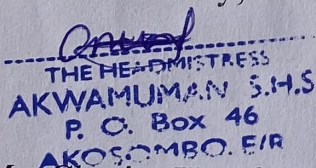 THE HEADMISTRESS
AKWAMUMAN S.H.S
P. O. Box 46
AKOSOMBO. E/R